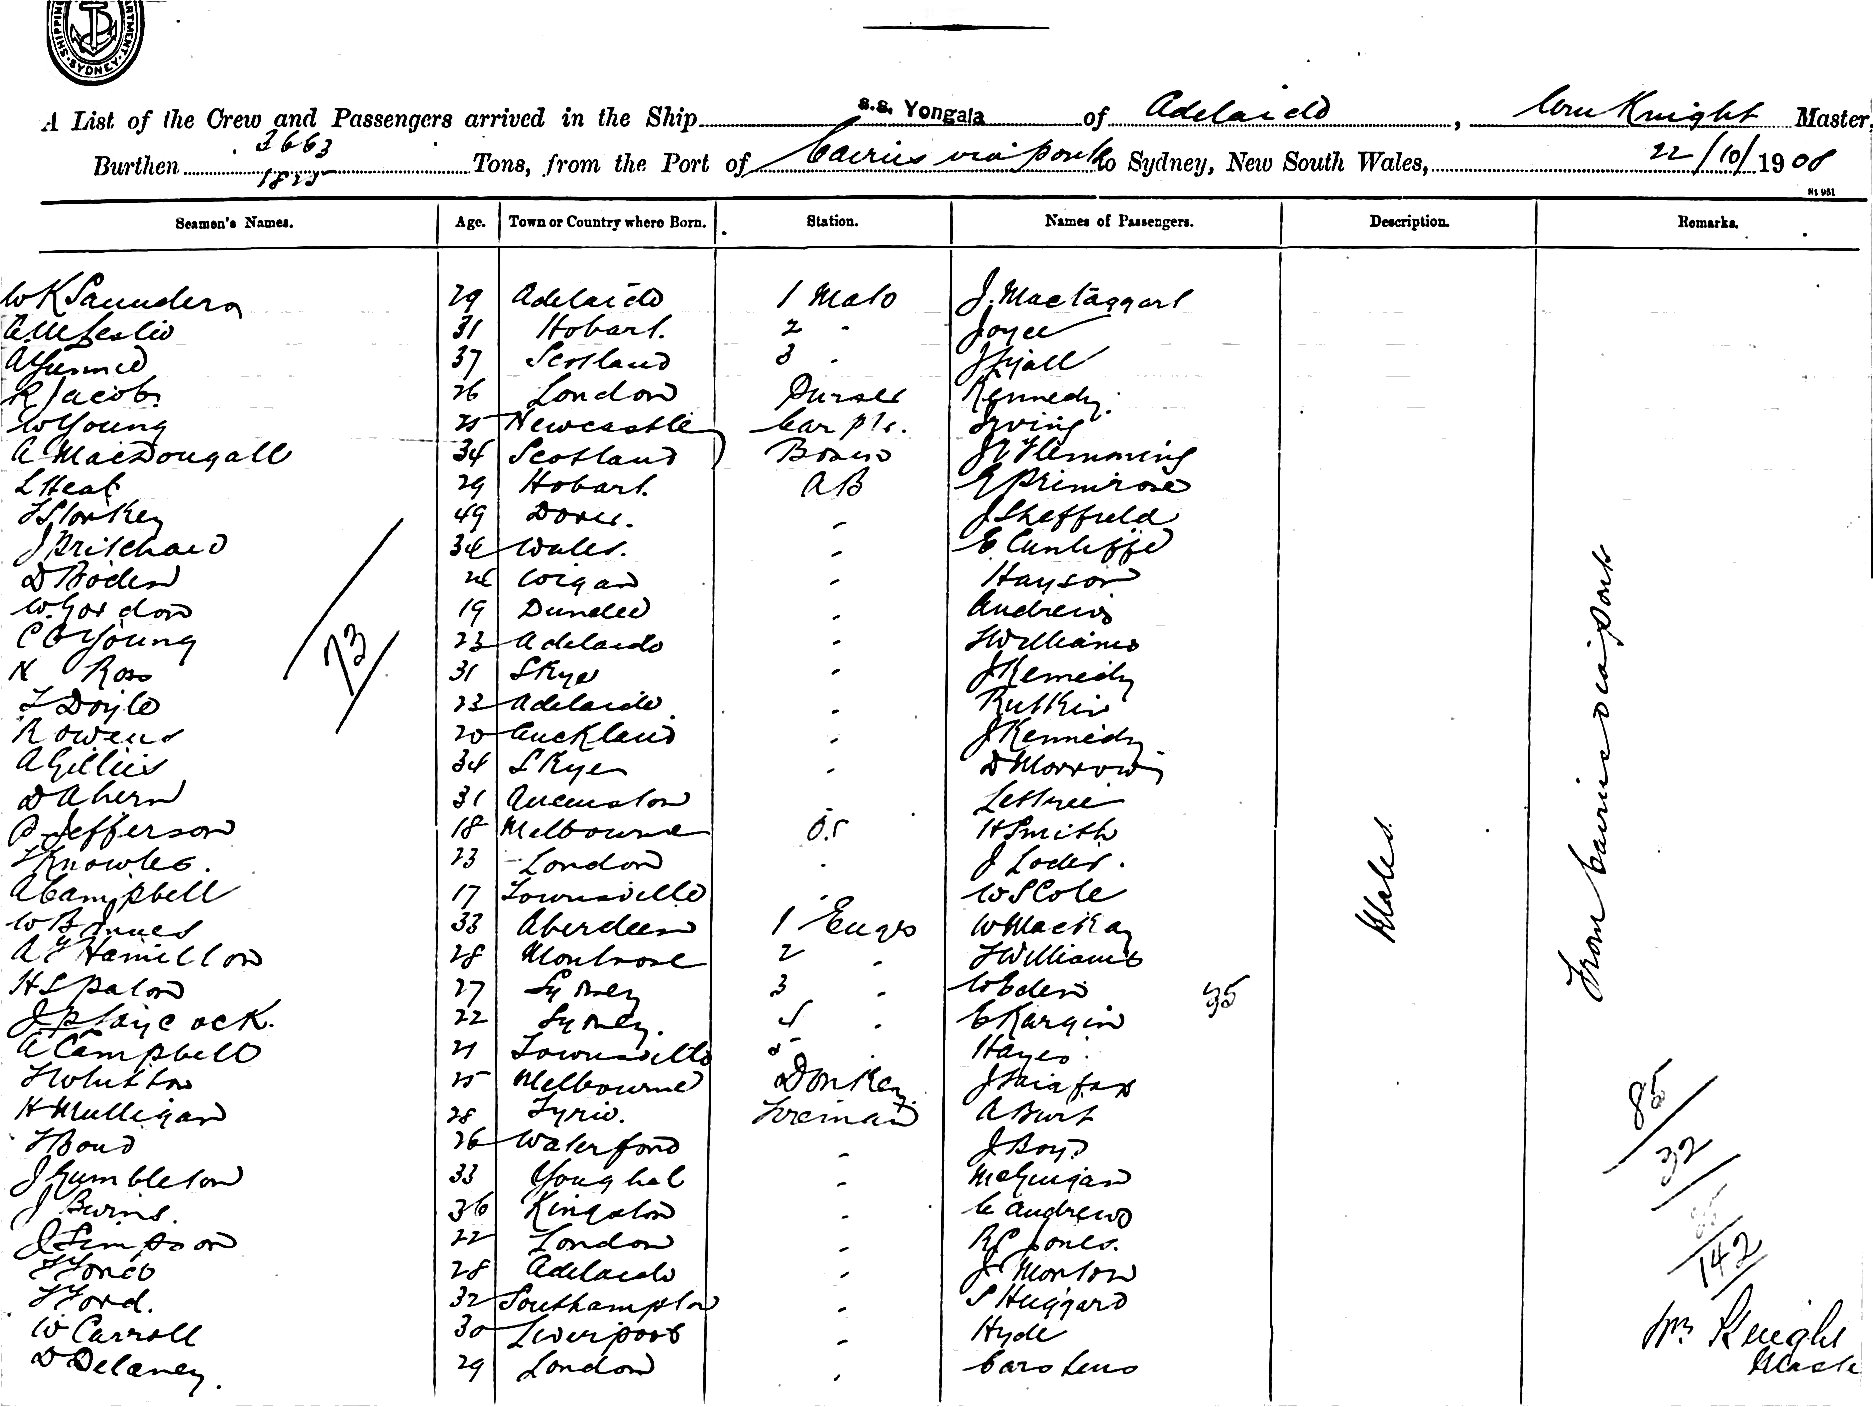 SHIPPING DEPARTMENT SYDNEY
A List of the Crew and Passengers arrived in the Ship s.s. Yongala of Adelaide, Wm Knight Master,
Burthen 3663 1825 Tons, from the Port of Cairns via ports to Sydney, New South Wales, 22/10/1908
Seamen's Names. Age. Town or Country where Born. Station. Names of Passengers. Description. Remarks.
W K Saunders 29 Adelaide 1 Mate J. Mactaggart
A M Leslie 31 Hobart. 2 " Joyce
37 Scotland 3 "
R Jacobs 26 London Purser Kennedy.
W Young 25 Newcastle Carptr. Irving
A MacDougall 34 Scotland Bosun J Flemming
L Heal 29 Hobart. AB E Primrose
49 Dover. " J Sheffield
J Pritchard 34 Wales. " E Cunliffe
D Boden 26 Wigan " Hayson
W. Gordon 19 Dundee " Andrews
C C Young 23 Adelaide " T Williams
N Ross 31 Skye " J Kennedy
T Doyle 23 Adelaide " Rutkin
R Owens 20 Auckland " J Kennedy
A Gillies 34 Skye " D Morrow
D Ahern 31 Queenstown "
P Jefferson 18 Melbourne O.S H Smith
T Knowles. 23 London " J Loder.
A Campbell 17 Townsville " W S Cole
W B Innes 33 Aberdeen 1 Engr W MacKay
A Y Hamilton 28 Montrose 2 " T Williams
H S Paton 27 Sydney 3 " W Eden 35
J P Laycock. 22 Sydney. 4 " C Kargin
A Campbell 21 Townsville 5 Hayes
T Whitton 25 Melbourne Donkey J Fairfax
H Mulligan 28 Fireman A Burt
T Bond 26 Waterford " J Boyd
J Rumbleton 33 Youghal " McGuigan
J Burns. 36 Kingston " C Andrews
J Simpson 22 London " Jones.
28 Adelaide " J Morton
T Ford. 32 Southampton " S Huggard
W Carroll 30 Liverpool " Hyde
D Delaney. 29 London " Carstens
73
Males
From Cairns via ports
85
32
142
Wm Knight
Master